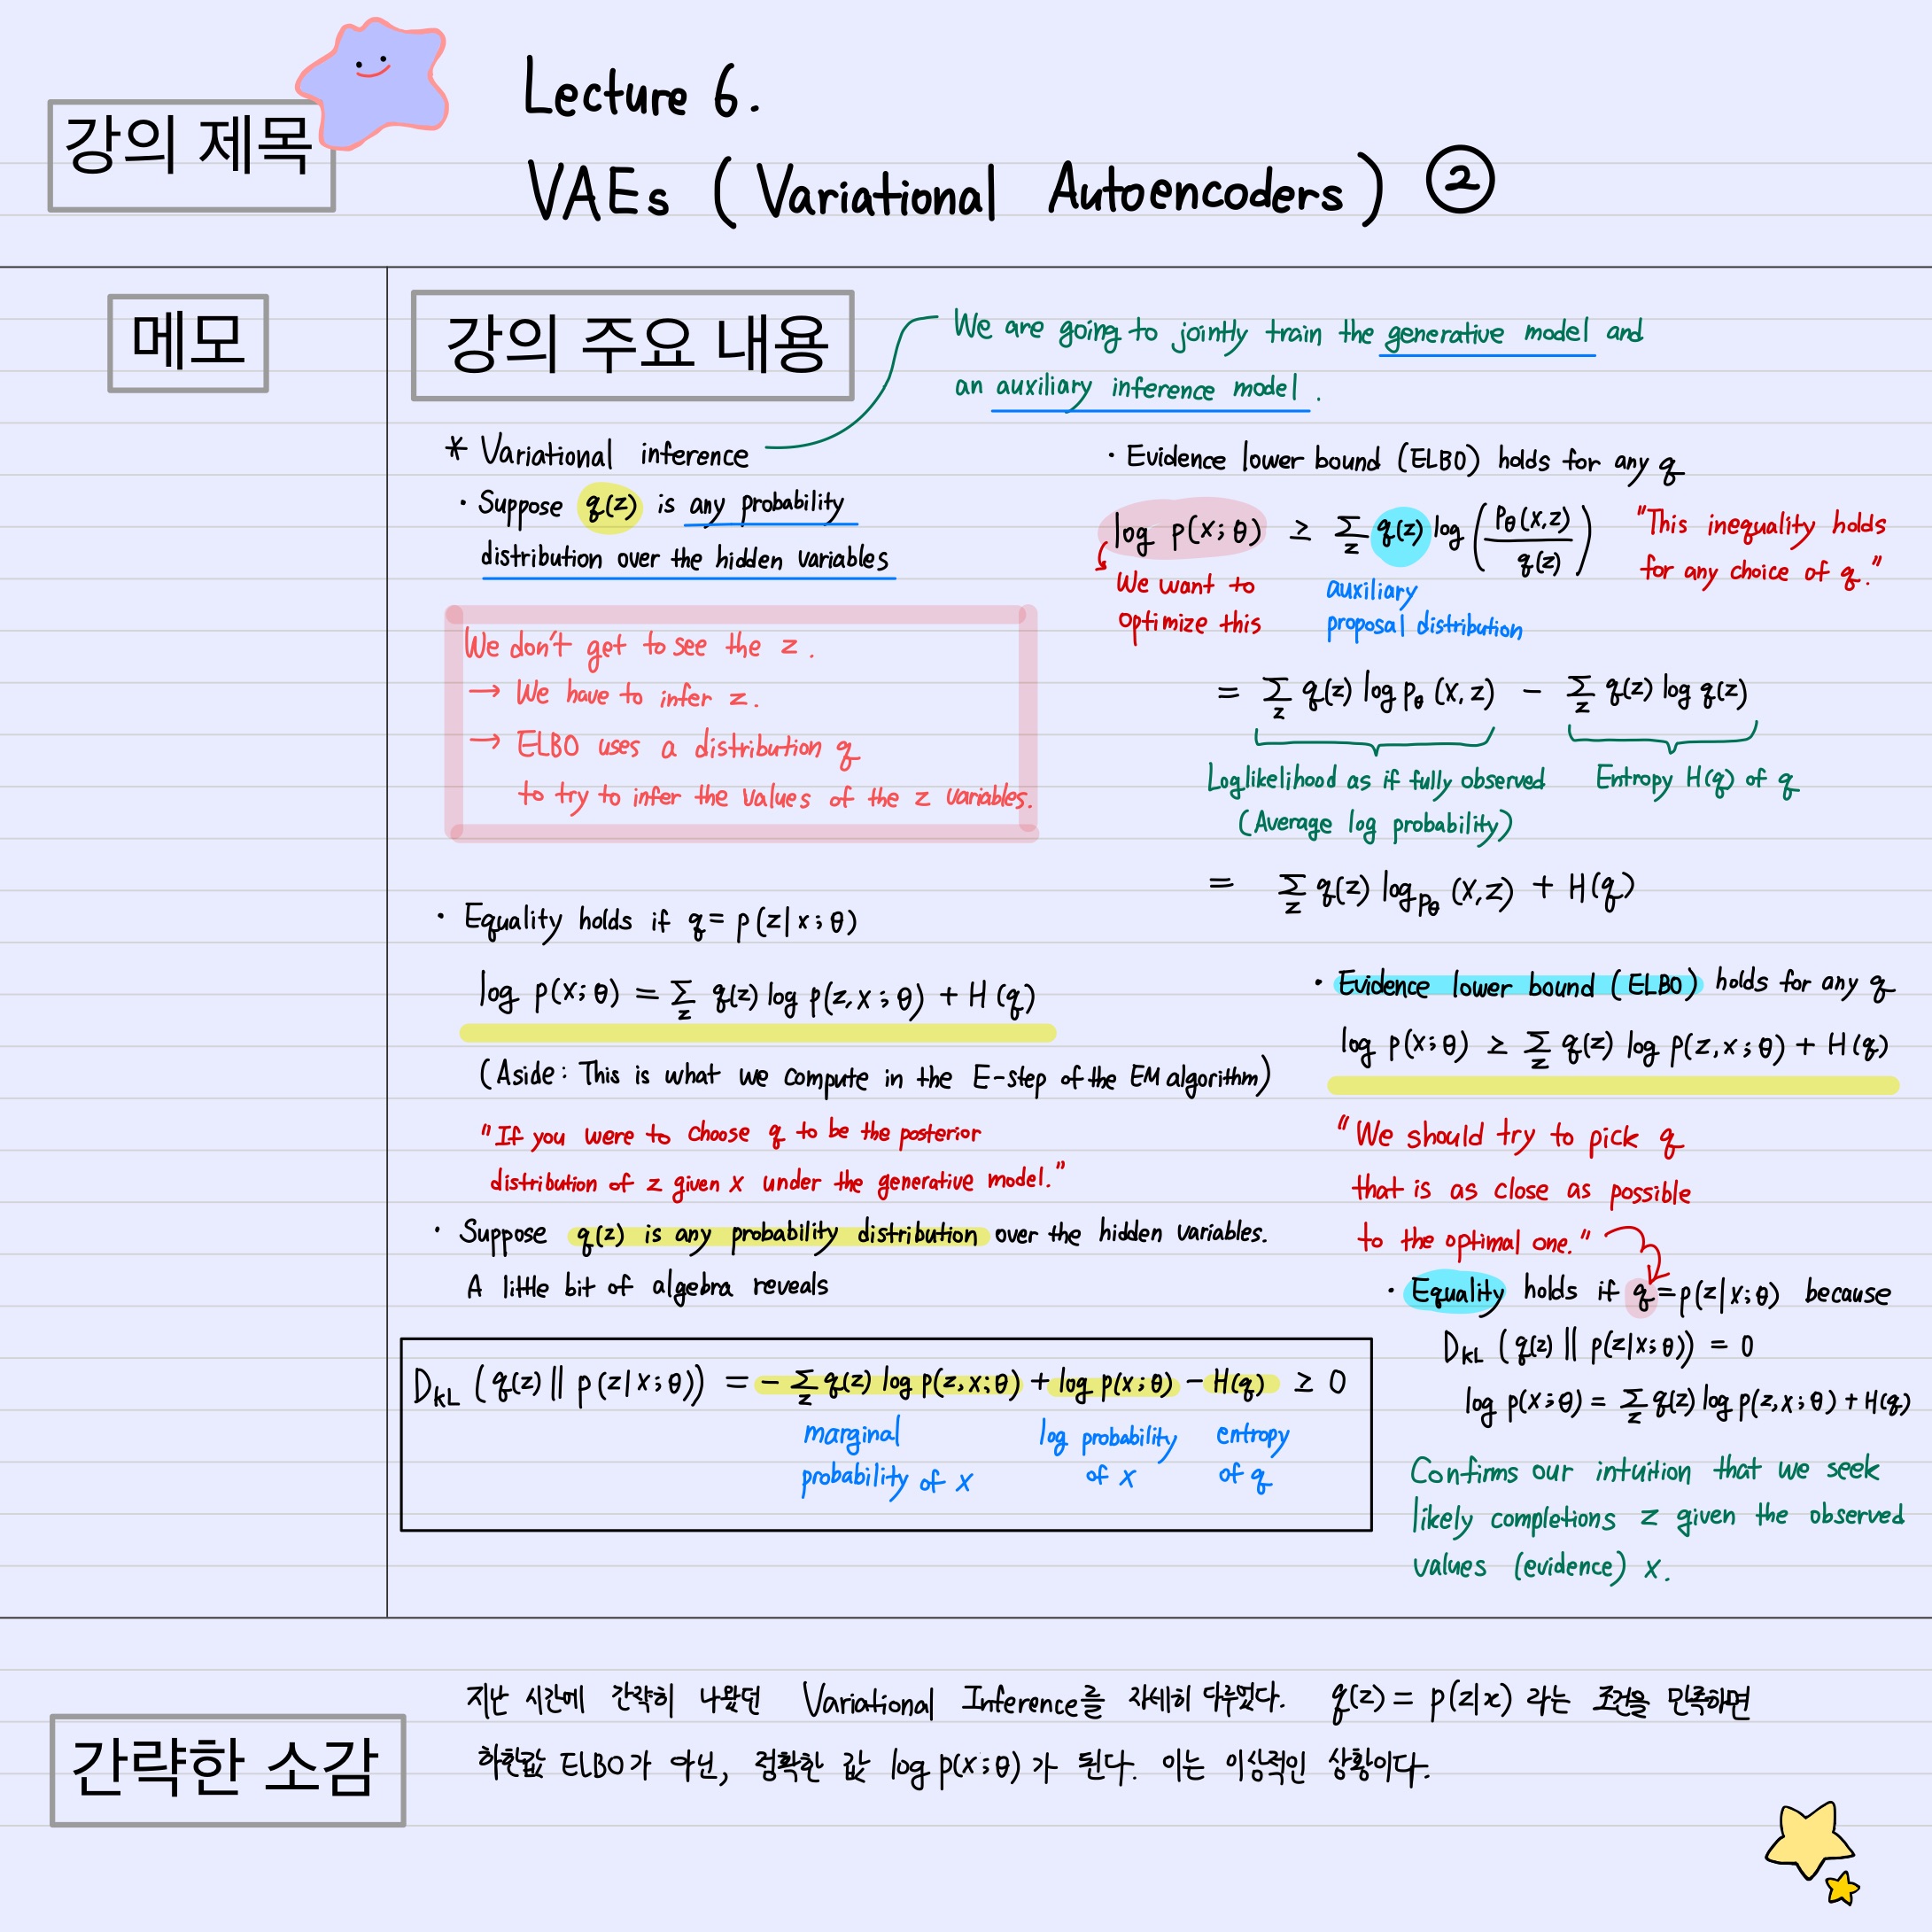 강의 제목
Lecture 6.
VAEs (Variational Autoencoders) ②
메모
강의 주요 내용
We are going to jointly train the generative model and
an auxiliary inference model.
* Variational inference
· Suppose q(z) is any probability
distribution over the hidden variables
We don't get to see the z.
→ We have to infer z.
→ ELBO uses a distribution q
to try to infer the values of the z variables.
· Evidence lower bound (ELBO) holds for any q
log p(x;θ) ≥ Σ_z q(z) log (p_θ(x,z) / q(z))
"This inequality holds
for any choice of q."
We want to
optimize this
auxiliary
proposal distribution
= Σ_z q(z) log p_θ(x,z) − Σ_z q(z) log q(z)
Loglikelihood as if fully observed
(Average log probability)
Entropy H(q) of q
= Σ_z q(z) log_{p_θ}(x,z) + H(q)
· Equality holds if q = p(z|x;θ)
log p(x;θ) = Σ_z q(z) log p(z,x;θ) + H(q)
(Aside: This is what we compute in the E-step of the EM algorithm)
"If you were to choose q to be the posterior
distribution of z given x under the generative model."
· Suppose q(z) is any probability distribution over the hidden variables.
A little bit of algebra reveals
D_KL(q(z) || p(z|x;θ)) = − Σ_z q(z) log p(z,x;θ) + log p(x;θ) − H(q) ≥ 0
marginal
probability of x
log probability
of x
entropy
of q
· Evidence lower bound (ELBO) holds for any q
log p(x;θ) ≥ Σ_z q(z) log p(z,x;θ) + H(q)
"We should try to pick q
that is as close as possible
to the optimal one."
· Equality holds if q=p(z|x;θ) because
D_KL(q(z) || p(z|x;θ)) = 0
log p(x;θ) = Σ_z q(z) log p(z,x;θ) + H(q)
Confirms our intuition that we seek
likely completions z given the observed
values (evidence) x.
간략한 소감
지난 시간에 간략히 나왔던 Variational Inference를 자세히 다루었다. q(z) = p(z|x) 라는 조건을 만족하면
하한값 ELBO가 아닌, 정확한 값 log p(x;θ)가 된다. 이는 이상적인 상황이다.